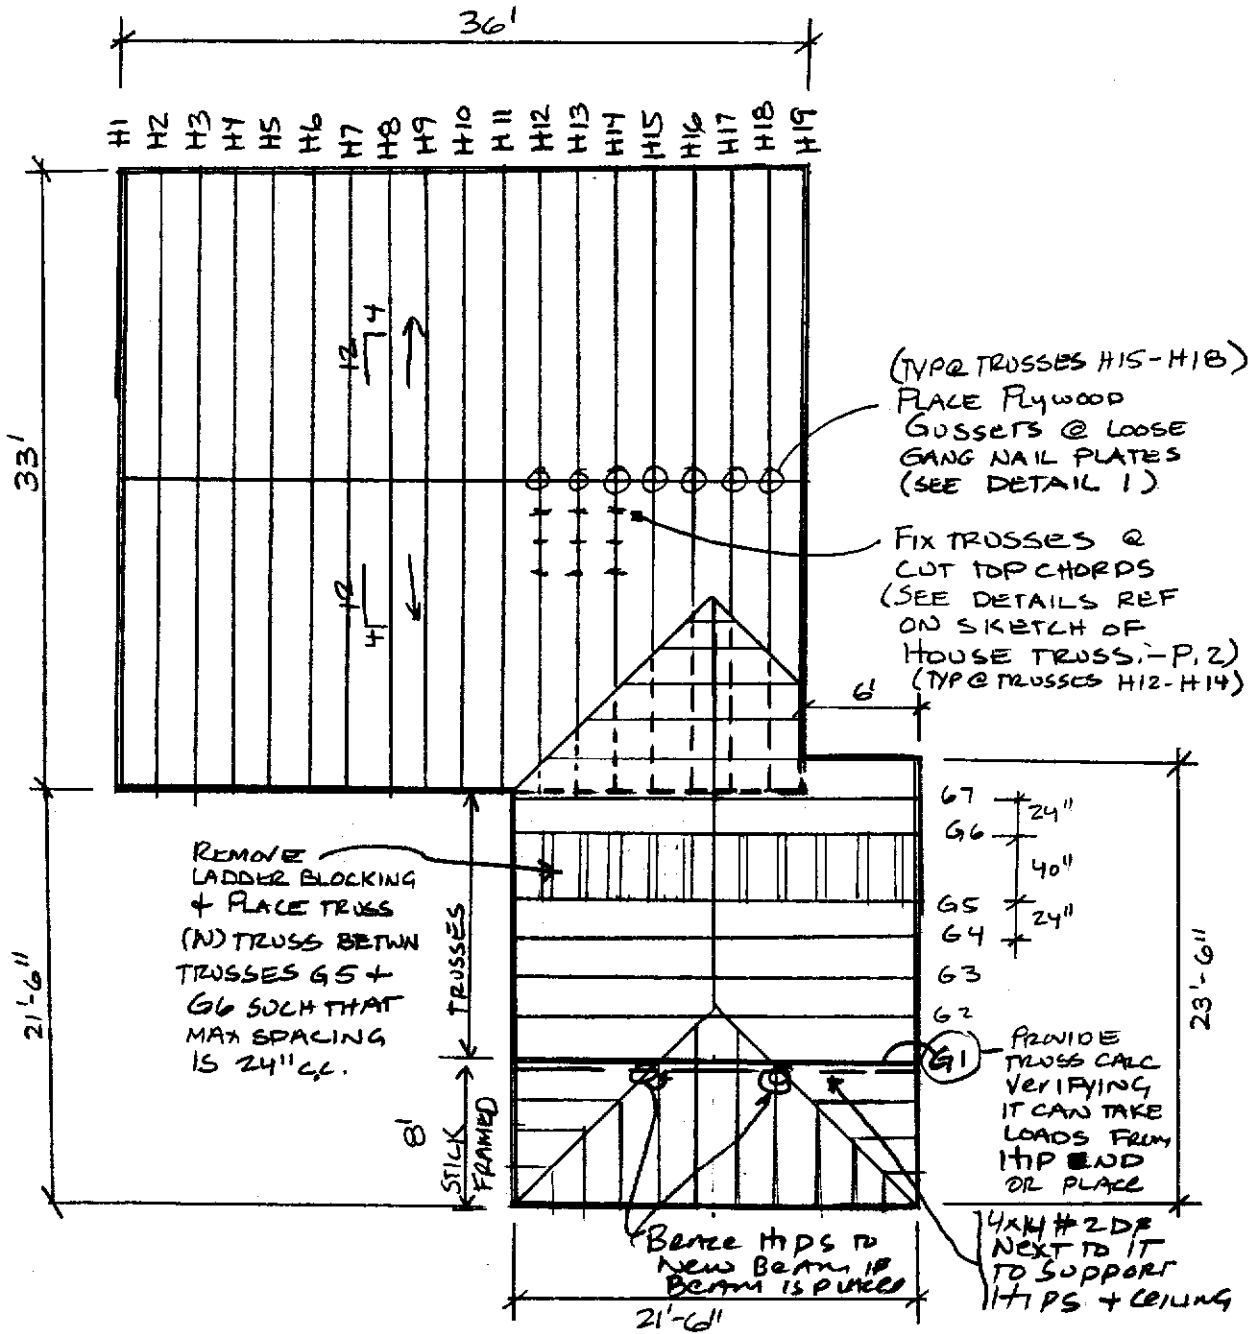 36'
H1
H2
H3
H4
H5
H6
H7
H8
H9
H10
H11
H12
H13
H14
H15
H16
H17
H18
H19
33'
12
4
12
4
(TYP @ TRUSSES H15-H18)
PLACE PLYWOOD
GUSSETS @ LOOSE
GANG NAIL PLATES
(SEE DETAIL 1)
FIX TRUSSES @
CUT TOP CHORDS
(SEE DETAILS REF
ON SKETCH OF
HOUSE TRUSS.-P.2)
(TYP @ TRUSSES H12-H14)
6'
REMOVE
LADDER BLOCKING
+ PLACE TRUSS
(N) TRUSS BETWN
TRUSSES G5 +
G6 SUCH THAT
MAX SPACING
IS 24" C.C.
TRUSSES
8'
STICK
FRAMED
21'-6"
G7
G6
G5
G4
G3
G2
G1
24"
40"
24"
23'-6"
PROVIDE
TRUSS CALC
VERIFYING
IT CAN TAKE
LOADS FROM
HIP END
OR PLACE
4x14 #2DF
NEXT TO IT
TO SUPPORT
HIPS + CEILING
BRACE HIPS TO
NEW BEAM IF
BEAM IS PLACED
21'-6"